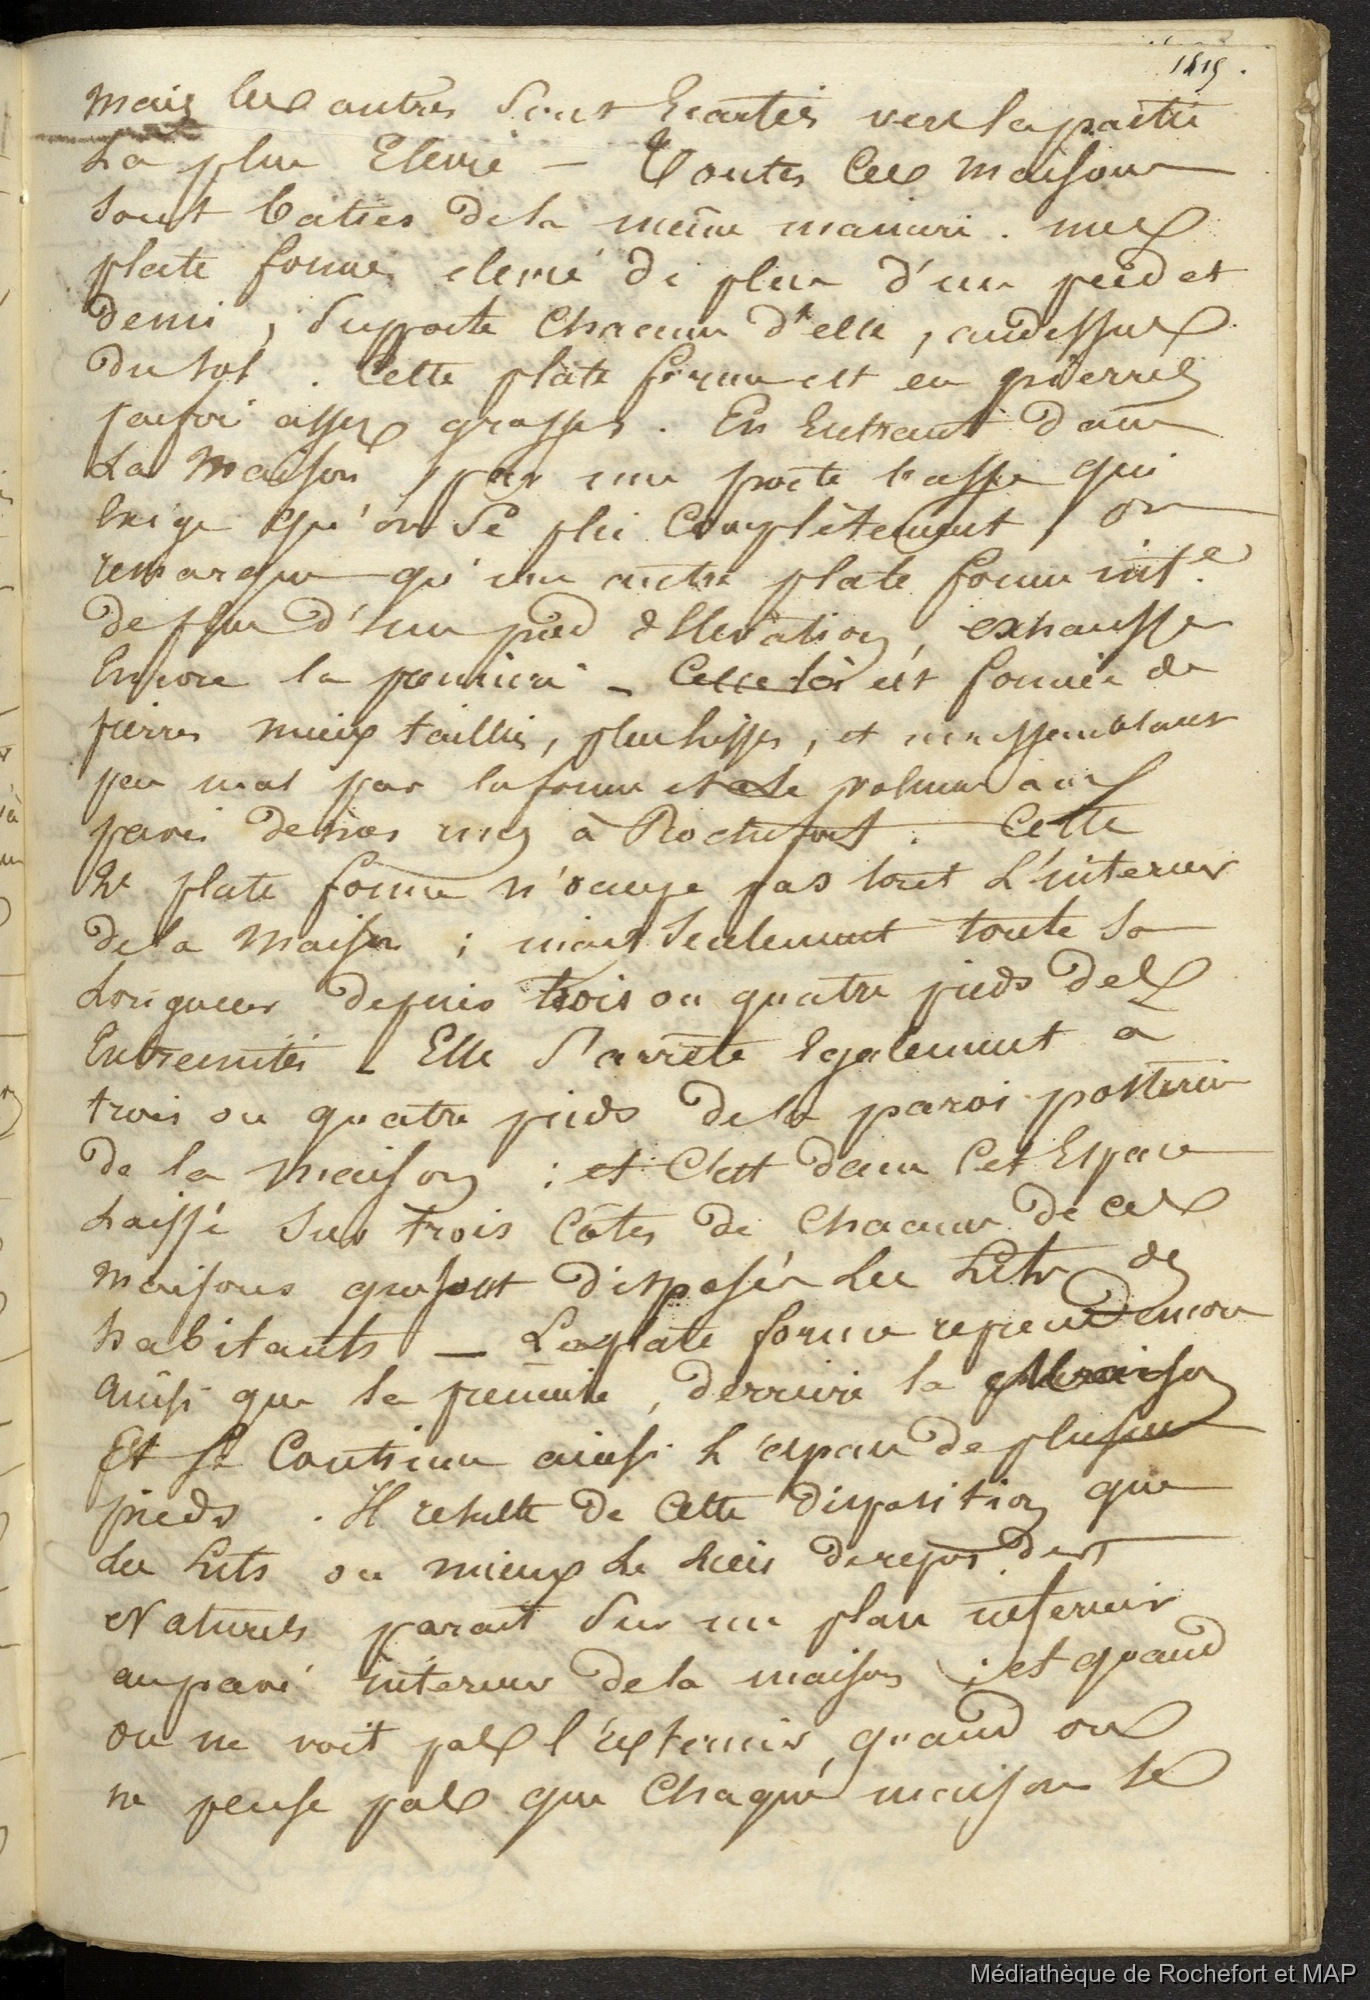 1515.
mais les autres sont Ecartés vers la partie
La plus Elevée — Toutes Ces maisons
sont baties de la même maniere. une
plate forme elevée de plus d'un pied et
demi, supporte Chacune d'elle, audessus
du sol. Cette plate forme est en pierres
parfois assez grosses. En Entrant dans
La Maison, par une porte basse qui
Exige qu'on se plie Complètement, on
remarque qu'une autre plate forme intre
de plus d'un pied d'Elevation, exhausse
Encore la premiere — Celle là est formée de
pierres mieux taillées, plus lisses, et ressemblant
pas mal par la forme et le volume aux
pavés de nos rues à Rochefort. Cette
2e plate forme n'occupe pas tout L'interieur
de la Maison ; mais seulement toute sa
Longueur depuis trois ou quatre pieds des
Extremités — Elle s'arrête Egalement à
trois ou quatre pieds de la paroi posterieure
de la Maison : et C'est dans Cet Espace
Laissé sur trois Côtés de Chacune de ces
Maisons que sont disposés Les Lits des
habitants — La plate forme reprend encore
Ainsi que la premiere, derriere la Maison
Et se Continue ainsi L'espace de plusieurs
pieds. Il resulte de Cette disposition que
Les Lits ou mieux Les Lieux de repos des
Naturels parait sur un plan inferieur
au pavé interieur de la maison ; et quand
on ne voit pas l'exterieur, quand on
ne pense pas que Chaque maison se
Médiathèque de Rochefort et MAP